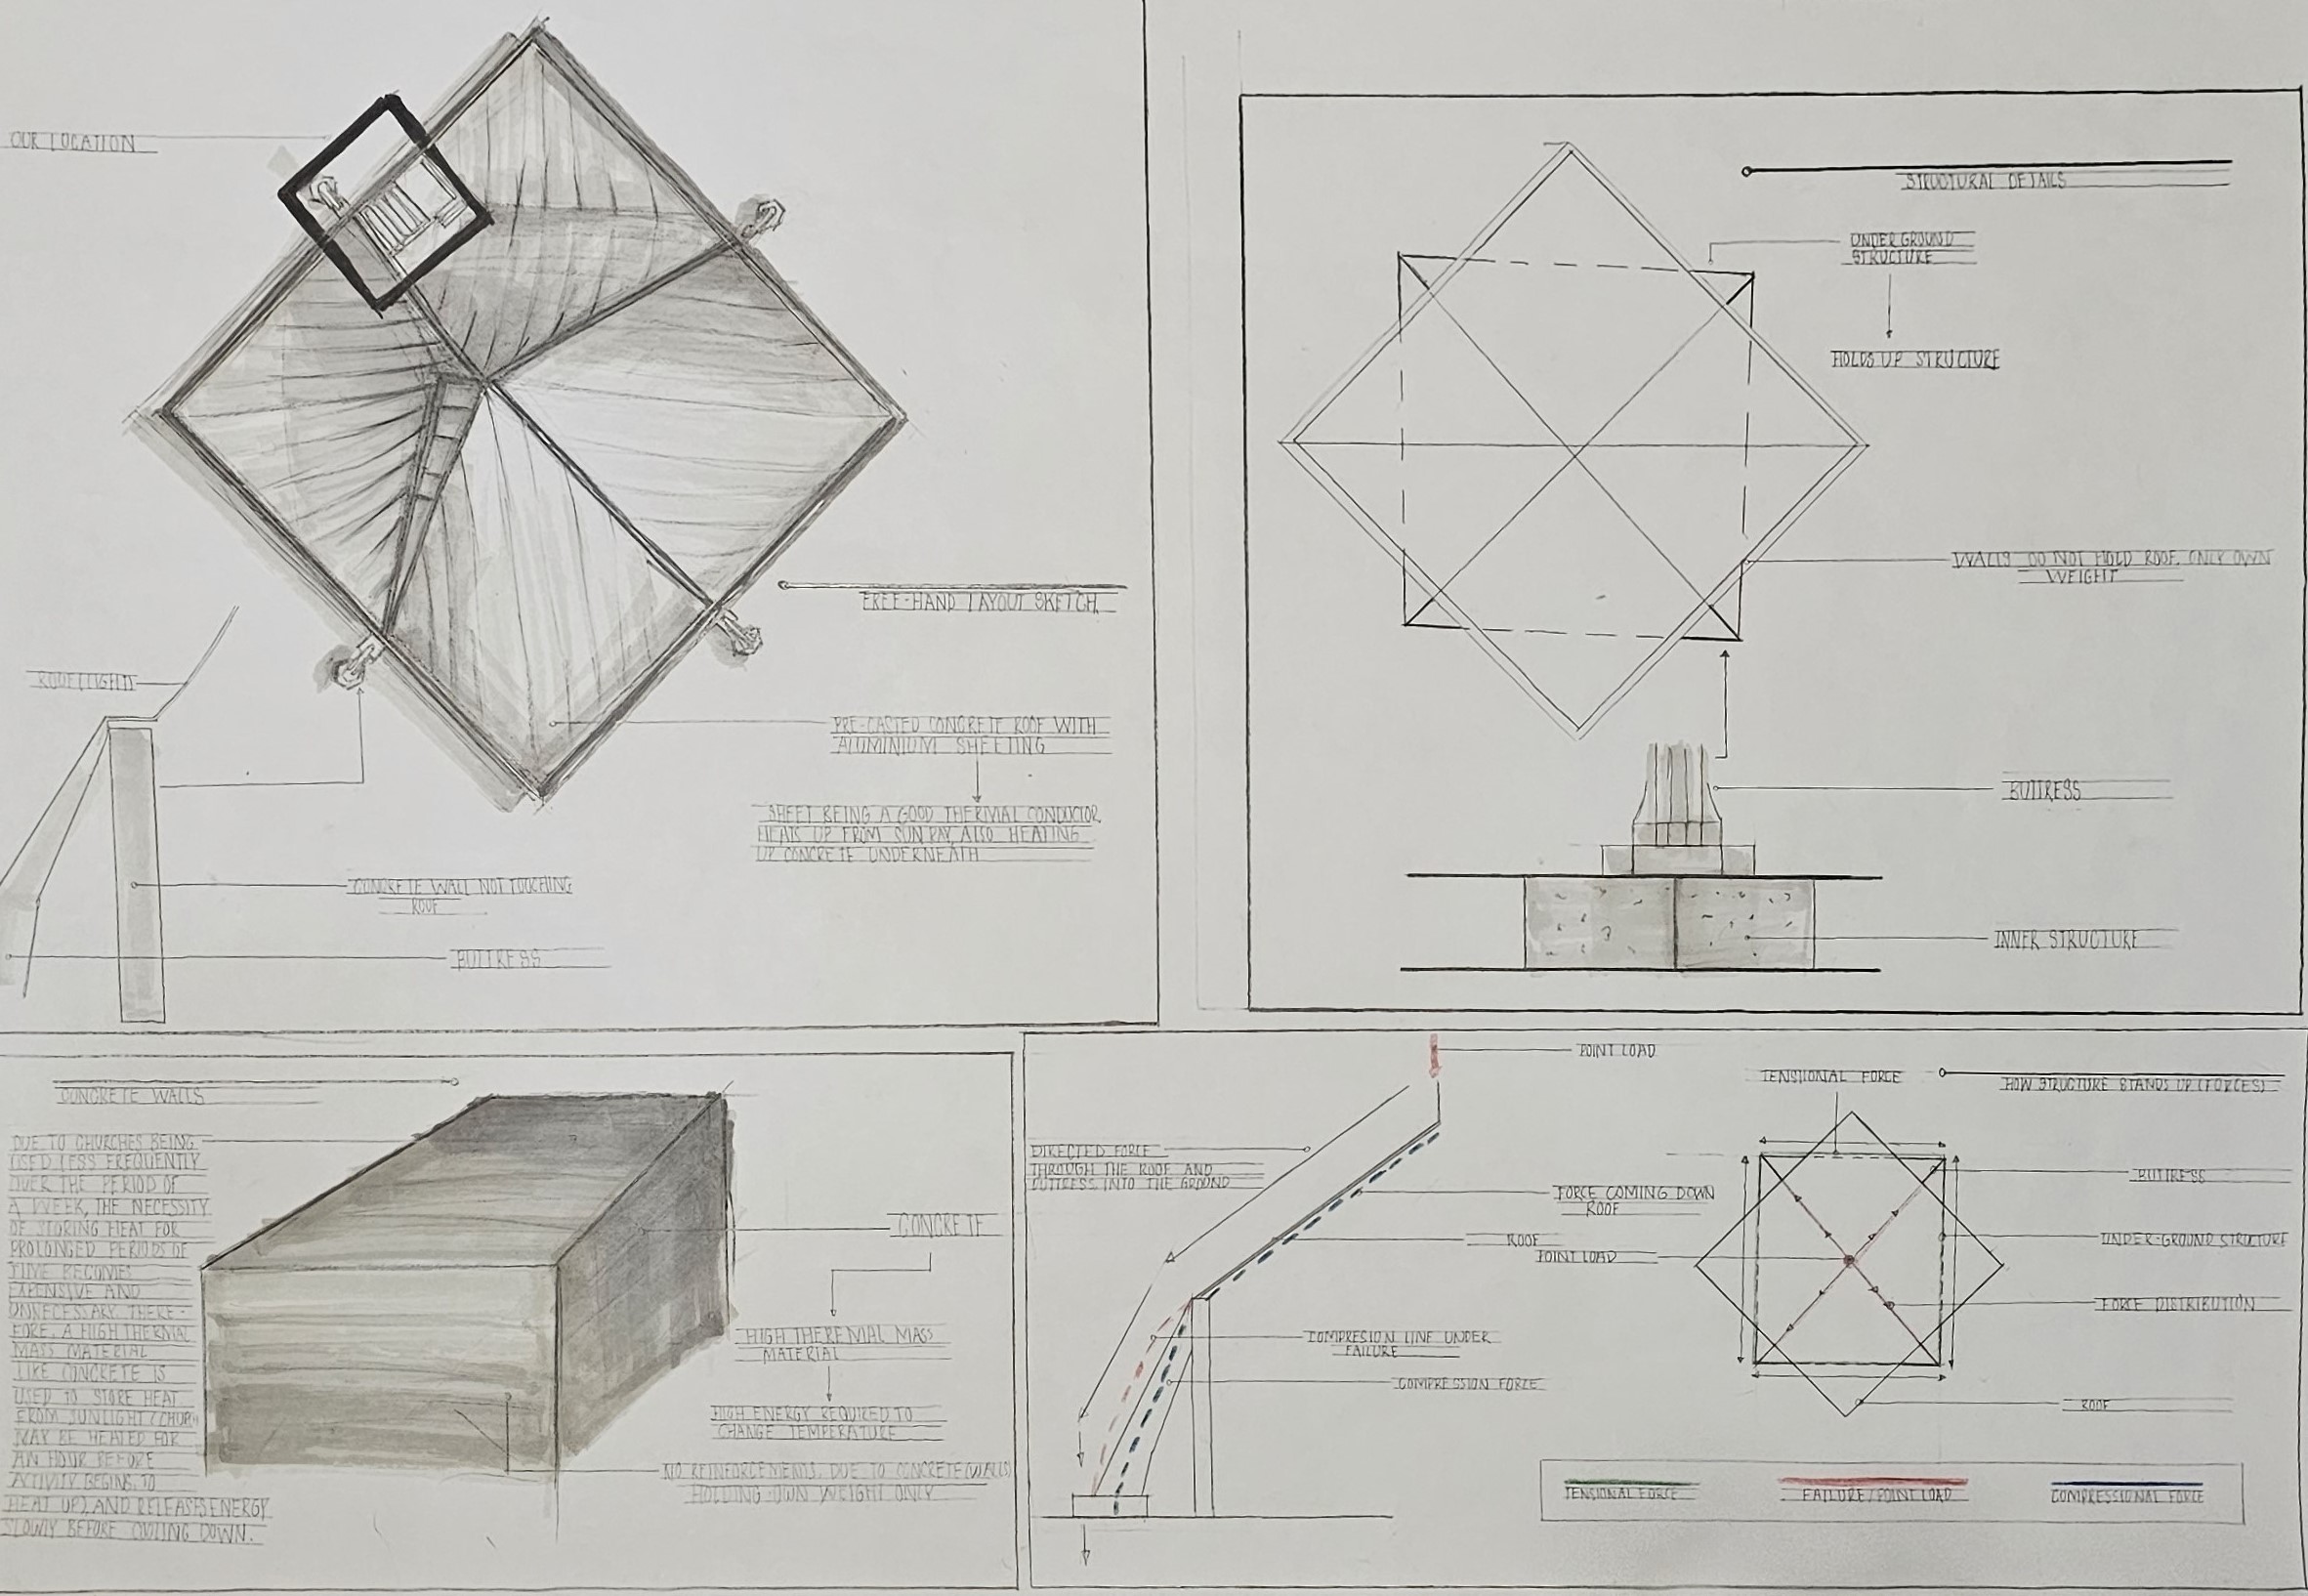 OUR LOCATION
FREE-HAND LAYOUT SKETCH.
ROOF (LIGHT)
PRE-CASTED CONCRETE ROOF WITH
ALUMINIUM SHEETING
SHEET BEING A GOOD THERMAL CONDUCTOR
HEATS UP FROM SUN RAY, ALSO HEATING
UP CONCRETE UNDERNEATH
CONCRETE WALL NOT TOUCHING
ROOF
BUTTRESS
STRUCTURAL DETAILS
UNDERGROUND
STRUCTURE
HOLDS UP STRUCTURE
WALLS DO NOT HOLD ROOF, ONLY OWN
WEIGHT
BUTTRESS
INNER STRUCTURE
CONCRETE WALLS
DUE TO CHURCHES BEING
USED LESS FREQUENTLY
OVER THE PERIOD OF
A WEEK, THE NECESSITY
OF STORING HEAT FOR
PROLONGED PERIODS OF
TIME BECOMES
EXPENSIVE AND
UNNECESSARY. THERE-
FORE, A HIGH THERMAL
MASS MATERIAL
LIKE CONCRETE IS
USED TO STORE HEAT
FROM SUNLIGHT (CHURCH
MAY BE HEATED FOR
AN HOUR BEFORE
ACTIVITY BEGINS, TO
HEAT UP) AND RELEASES ENERGY
SLOWLY BEFORE COOLING DOWN.
CONCRETE
HIGH THEREMAL MASS
MATERIAL
HIGH ENERGY REQUIRED TO
CHANGE TEMPERATURE
NO REINFORCEMENTS, DUE TO CONCRETE (WALLS)
HOLDING OWN WEIGHT ONLY
POINT LOAD
DIRECTED FORCE
THROUGH THE ROOF AND
BUTTRESS, INTO THE GROUND
FORCE COMING DOWN
ROOF
ROOF
COMPRESION LINE UNDER
FAILURE
COMPRESSION FORCE
TENSIIONAL FORCE
HOW STRUCTURE STANDS UP (FORCES)
BUTTRESS
UNDER-GROUND STRUCTURE
POINT LOAD
FORCE DISTRIBUTION
ROOF
TENSIONAL FORCE
FAILURE/POINT LOAD
COMPRESSIONAL FORCE